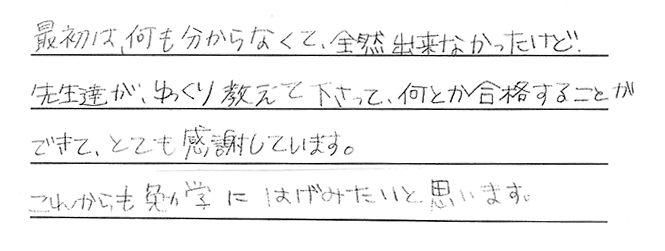 最初は、何も分からなくて、全然出来なかったけど、
先生達が、ゆっくり教えて下さって、何とか合格することが
できて、とても感謝しています。
これからも勉学にはげみたいと思います。